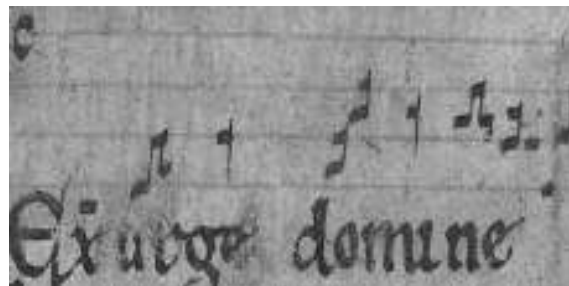 Exurge domine